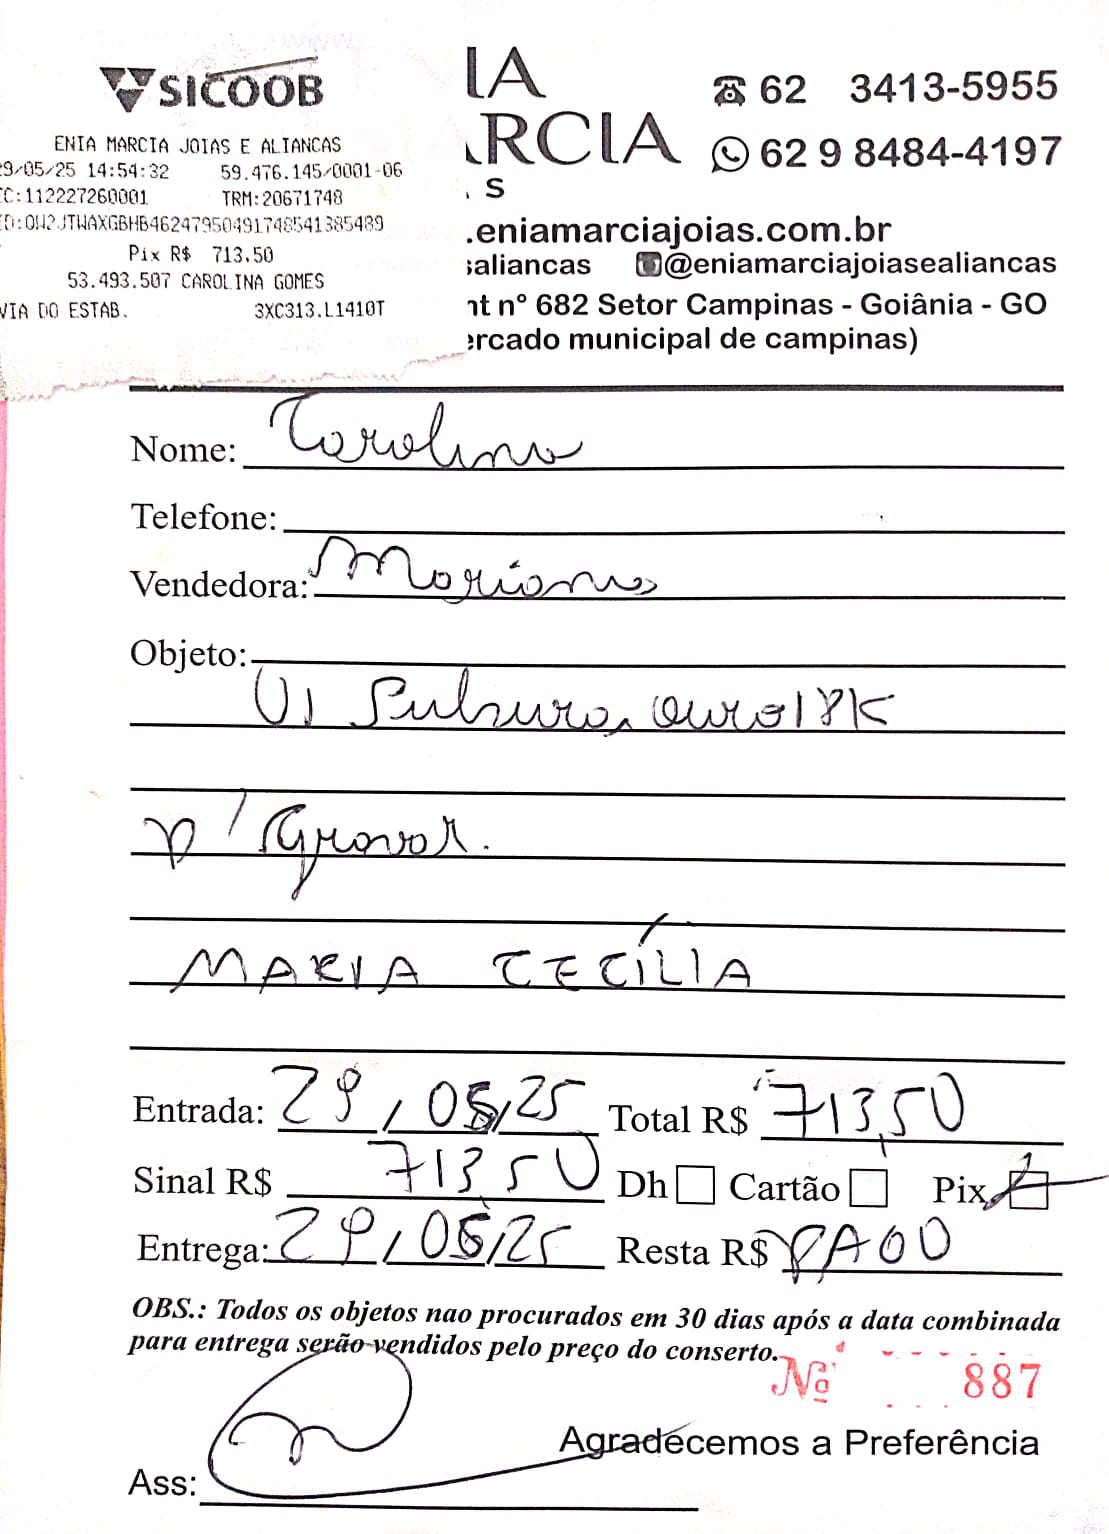 SICOOB
ENIA MARCIA JOIAS E ALIANCAS
9/05/25 14:54:32 59.476.145/0001-06
C:112227260001 TRM:20671748
D:OW2JTWAXGBHB46247950491748541385489
Pix R$ 713,50
53.493.507 CAROLINA GOMES
VIA DO ESTAB. 3XC313.L1410T
IA
RCIA
S
62 3413-5955
62 9 8484-4197
.eniamarciajoias.com.br
saliancas @eniamarciajoiasealiancas
nt n° 682 Setor Campinas - Goiânia - GO
ercado municipal de campinas)
Nome: Carolina
Telefone:
Vendedora: Mariana
Objeto:
01 Pulseira, ouro 18K
p/ Gravar.
MARIA CECÍLIA
Entrada: 29/05/25 Total R$ 713,50
Sinal R$ 713,50 Dh Cartão Pix
Entrega: 29/05/25 Resta R$ PAGO
OBS.: Todos os objetos nao procurados em 30 dias após a data combinada
para entrega serão vendidos pelo preço do conserto.
Nº 887
Agradecemos a Preferência
Ass: